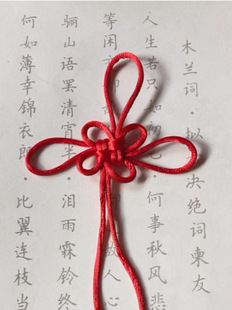 木兰词·拟决绝词柬友
人生若只如何事秋风悲
等闲人心
骊山语罢清宵半·泪雨霖铃终
何如薄幸锦衣郎·比翼连枝当